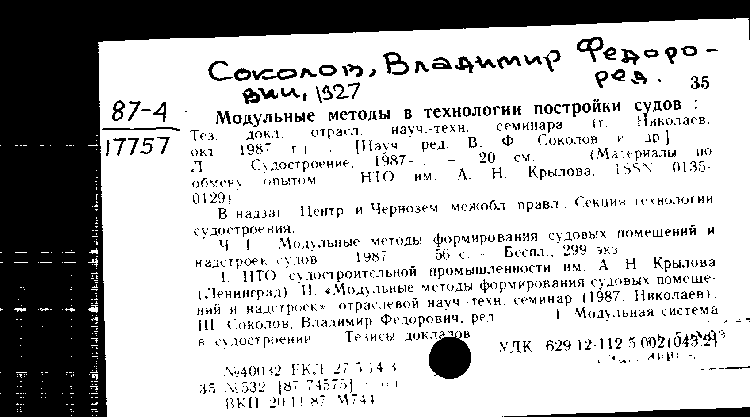 Соколов, Владимир Федоро-
вич, 1927 ред.
35
87-4
17757
Модульные методы в технологии постройки судов :
Тез. докл. отрасл. науч.-техн. семинара (г. Николаев,
окт. 1987 г.) [Науч. ред. В. Ф. Соколов и др.]
Л. Судостроение, 1987- . – 20 см. (Материалы по
обмену опытом НТО им. А. Н. Крылова, ISSN 0135-
0129)
В надзаг. Центр. и Чернозем. межобл. правл. Секция технологии
судостроения.
Ч. 1 Модульные методы формирования судовых помещений и
надстроек судов 1987 56 с. - Беспл., 299 экз.
I. НТО судостроительной промышленности им. А. Н. Крылова
(Ленинград) II. «Модульные методы формирования судовых помеще-
ний и надстроек» отраслевой науч.-техн. семинар (1987, Николаев).
III. Соколов, Владимир Федорович, ред. 1. Модульная система
в судостроении Тезисы докладов
УДК 629.12-112.5.002(043.2)
№40032 ЕКЛ 27.5.14.3
35 №532 [87-74575]
ВКП 20.11.87 М744